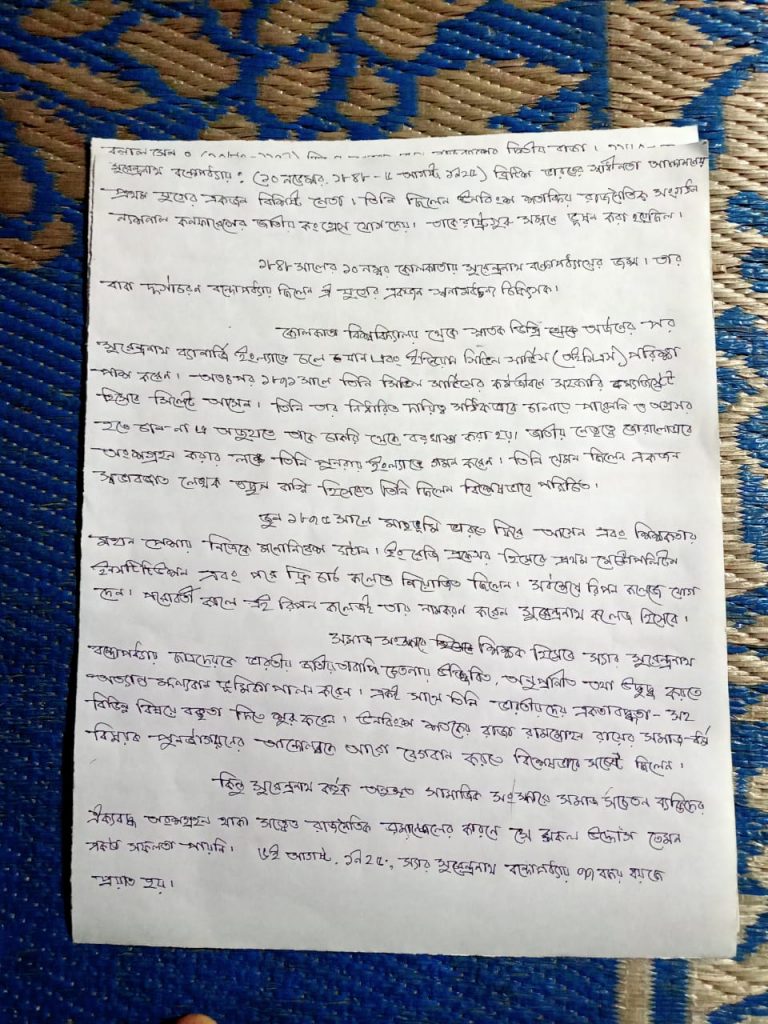 বল্লাল সেন : দ্বিতীয় রাজা।
সুরেন্দ্রনাথ বন্দ্যোপাধ্যায় : (১০ নভেম্বর, ১৮৪৮ - ৬ আগস্ট, ১৯২৫) ব্রিটিশ ভারতের স্বাধীনতা আন্দোলনের
প্রথম যুগের একজন বিশিষ্ট নেতা। তিনি ছিলেন ঊনবিংশ শতাব্দির রাজনৈতিক সংগঠন
ন্যাশনাল কনফারেন্সের জাতীয় কংগ্রেসে যোগ দেয়। তাকে রাষ্ট্রগুরু সম্মানে ভূষন করা হয়েছিল।
১৮৪৮ সালের ১০ নভেম্বর কোলকাতায় সুরেন্দ্রনাথ বন্দোপধ্যায়ের জন্ম। তার
বাবা দূর্গাচরন বন্দোপধ্যায় ছিলেন ঐ যুগের একজন স্বনামধন্য চিকিৎসক।
কোলকাতা বিশ্ববিদ্যালয় থেকে স্নাতক ডিগ্রি অর্জনের পর
সুরেন্দ্রনাথ ব্যানার্জি ইংল্যান্ডে চলে যান এবং ইন্ডিয়ান সিভিল সার্ভিস (আইসিএস) পরিক্ষা
পাশ করেন। অতঃপর ১৮৭১ সালে তিনি সিভিল সার্ভিসের কর্মজীবনে সহকারি ম্যাজিস্ট্রেট
হিসেবে সিলেট আসেন। তিনি তার নির্ধারিত দায়িত্ব সঠিকভাবে চালাতে পারেননি ও অগ্রসর
হতে চান-না এ অজুহাতে তাকে চাকরি থেকে বরখাস্ত করা হয়। জাতীয় নেতৃত্বে জোরালোভাবে
অংশগ্রহন করার লক্ষে তিনি পুনরায় ইংল্যান্ডে গমন করেন। তিনি যেমন ছিলেন একজন
স্বভাবজাত লেখক তেমন বাগ্মি হিসেবেও তিনি ছিলেন বিশেষভাবে পরিচিত।
জুন ১৮৭৫ সালে মাতৃভূমি ভারতে ফিরে আসেন এবং শিক্ষকতার
মহান পেশায় নিজেকে মনোনিবেশ ঘটান। ইংরেজি প্রফেসর হিসেবে প্রথম মেট্রোপলিটন
ইনস্টিটিউশন এবং পরে ফ্রি চার্চ কলেজে নিয়োজিত ছিলেন। অবশেষে রিপন কলেজে যোগ
দেন। পরবর্তী কালে এই রিপন কলেজই তার নামকরন করেন সুরেন্দ্রনাথ কলেজ হিসেবে।
সমাজ সংস্কারে শিক্ষক হিসেবে স্যার সুরেন্দ্রনাথ
বন্দোপধ্যায় ছাত্রদেরকে ভারতীয় জাতীয়তাবাদি চেতনায় উজ্জিবিত, অনুপ্রানীত তথা উদ্বুদ্ধ করতে
অত্যান্ত মূল্যবান ভূমিকা পালন করেন। একই সালে তিনি ভারতীয়দের একতাবদ্ধতা - সহ
বিভিন্ন বিষয়ে বক্তৃতা দিতে শুরু করেন। ঊনবিংশ শতকের রাজা রামমোহন রায়ের সমাজ-ধর্ম
বিষয়ক পুনর্জাগরনের আন্দোলনকে আরো বেগবান করতে বিশেষভাবে সচেষ্ট ছিলেন।
কিন্তু সুরেন্দ্রনাথ কর্তৃক অনুসৃত সামাজিক সংস্কারে সমাজ সচেতন ব্যক্তিদের
ঐক্যবদ্ধ অংশগ্রহন থাকা সত্ত্বেও রাজনৈতিক কারনে সে সকল উদ্যোগ তেমন
একটা সফলতা পায়নি। ৬ই আগস্ট, ১৯২৫, স্যার সুরেন্দ্রনাথ বন্দোপধ্যায় ৭৭ বছর বয়সে
প্রয়াত হয়।